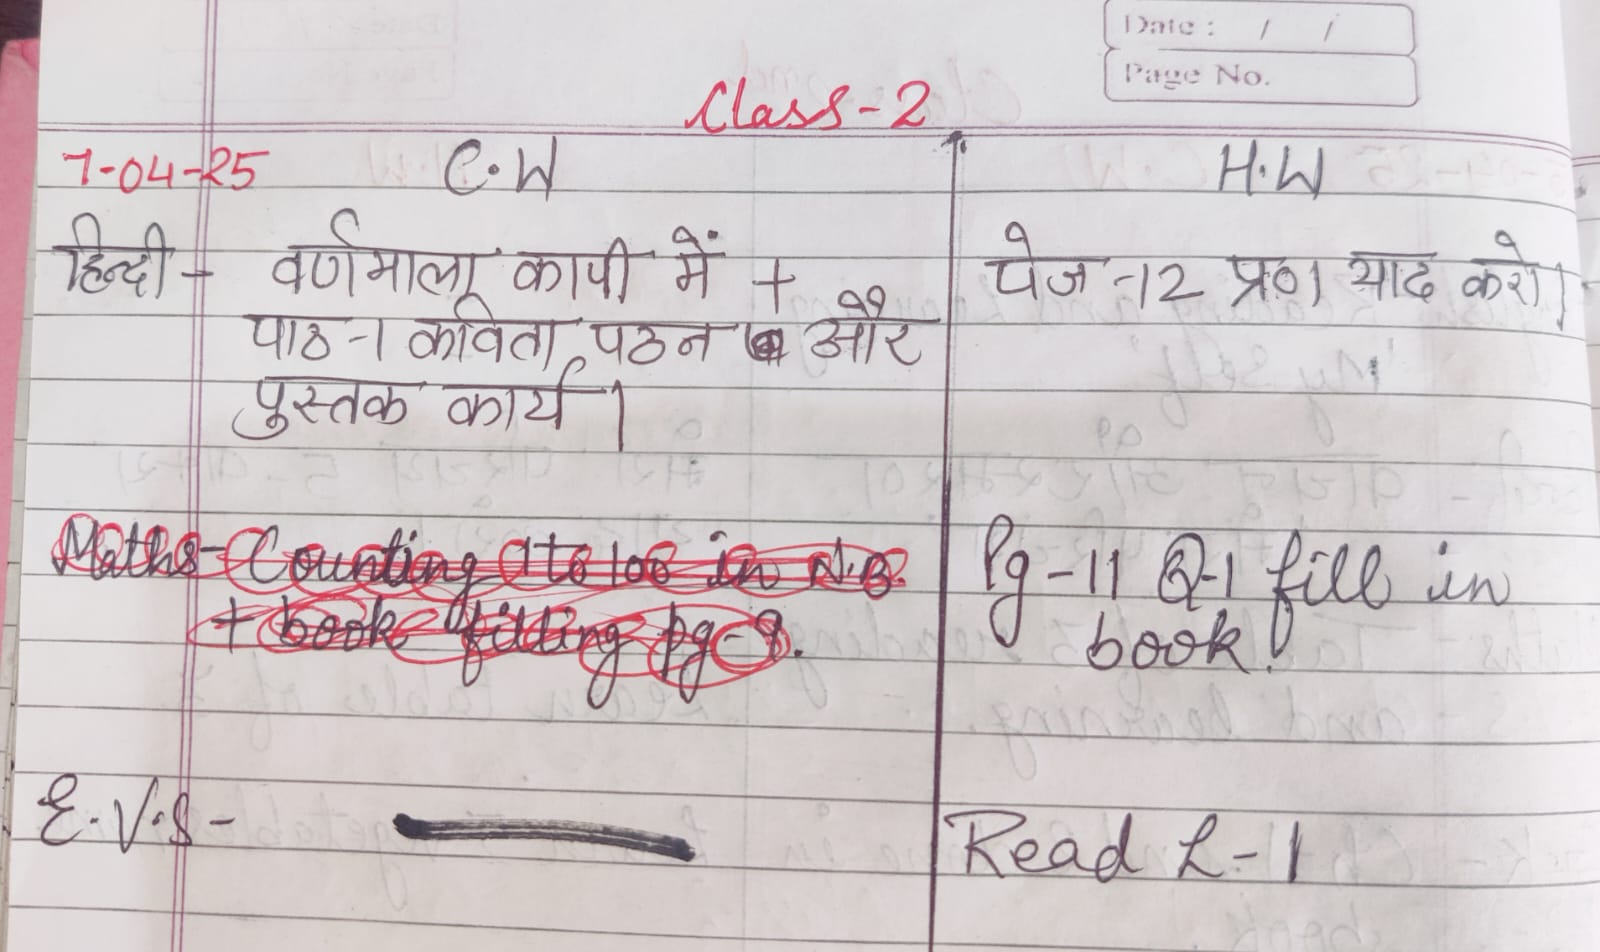 Date : / /
Page No.
Class-2
7-04-25 C.W H.W
हिन्दी - वर्णमाला कापी में + पेज -12 प्र०1 याद करो।
पाठ-1 कविता पठन और
पुस्तक कार्य।
Maths- Counting 1 to 100 in N.B. Pg-11 Q-1 fill in
+ book filling pg-9. book.
E.V.S- Read L-1